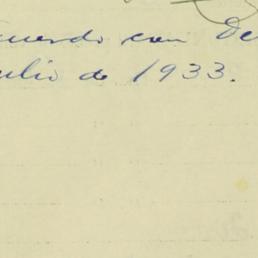 cuerdo con De
ulio de 1933.